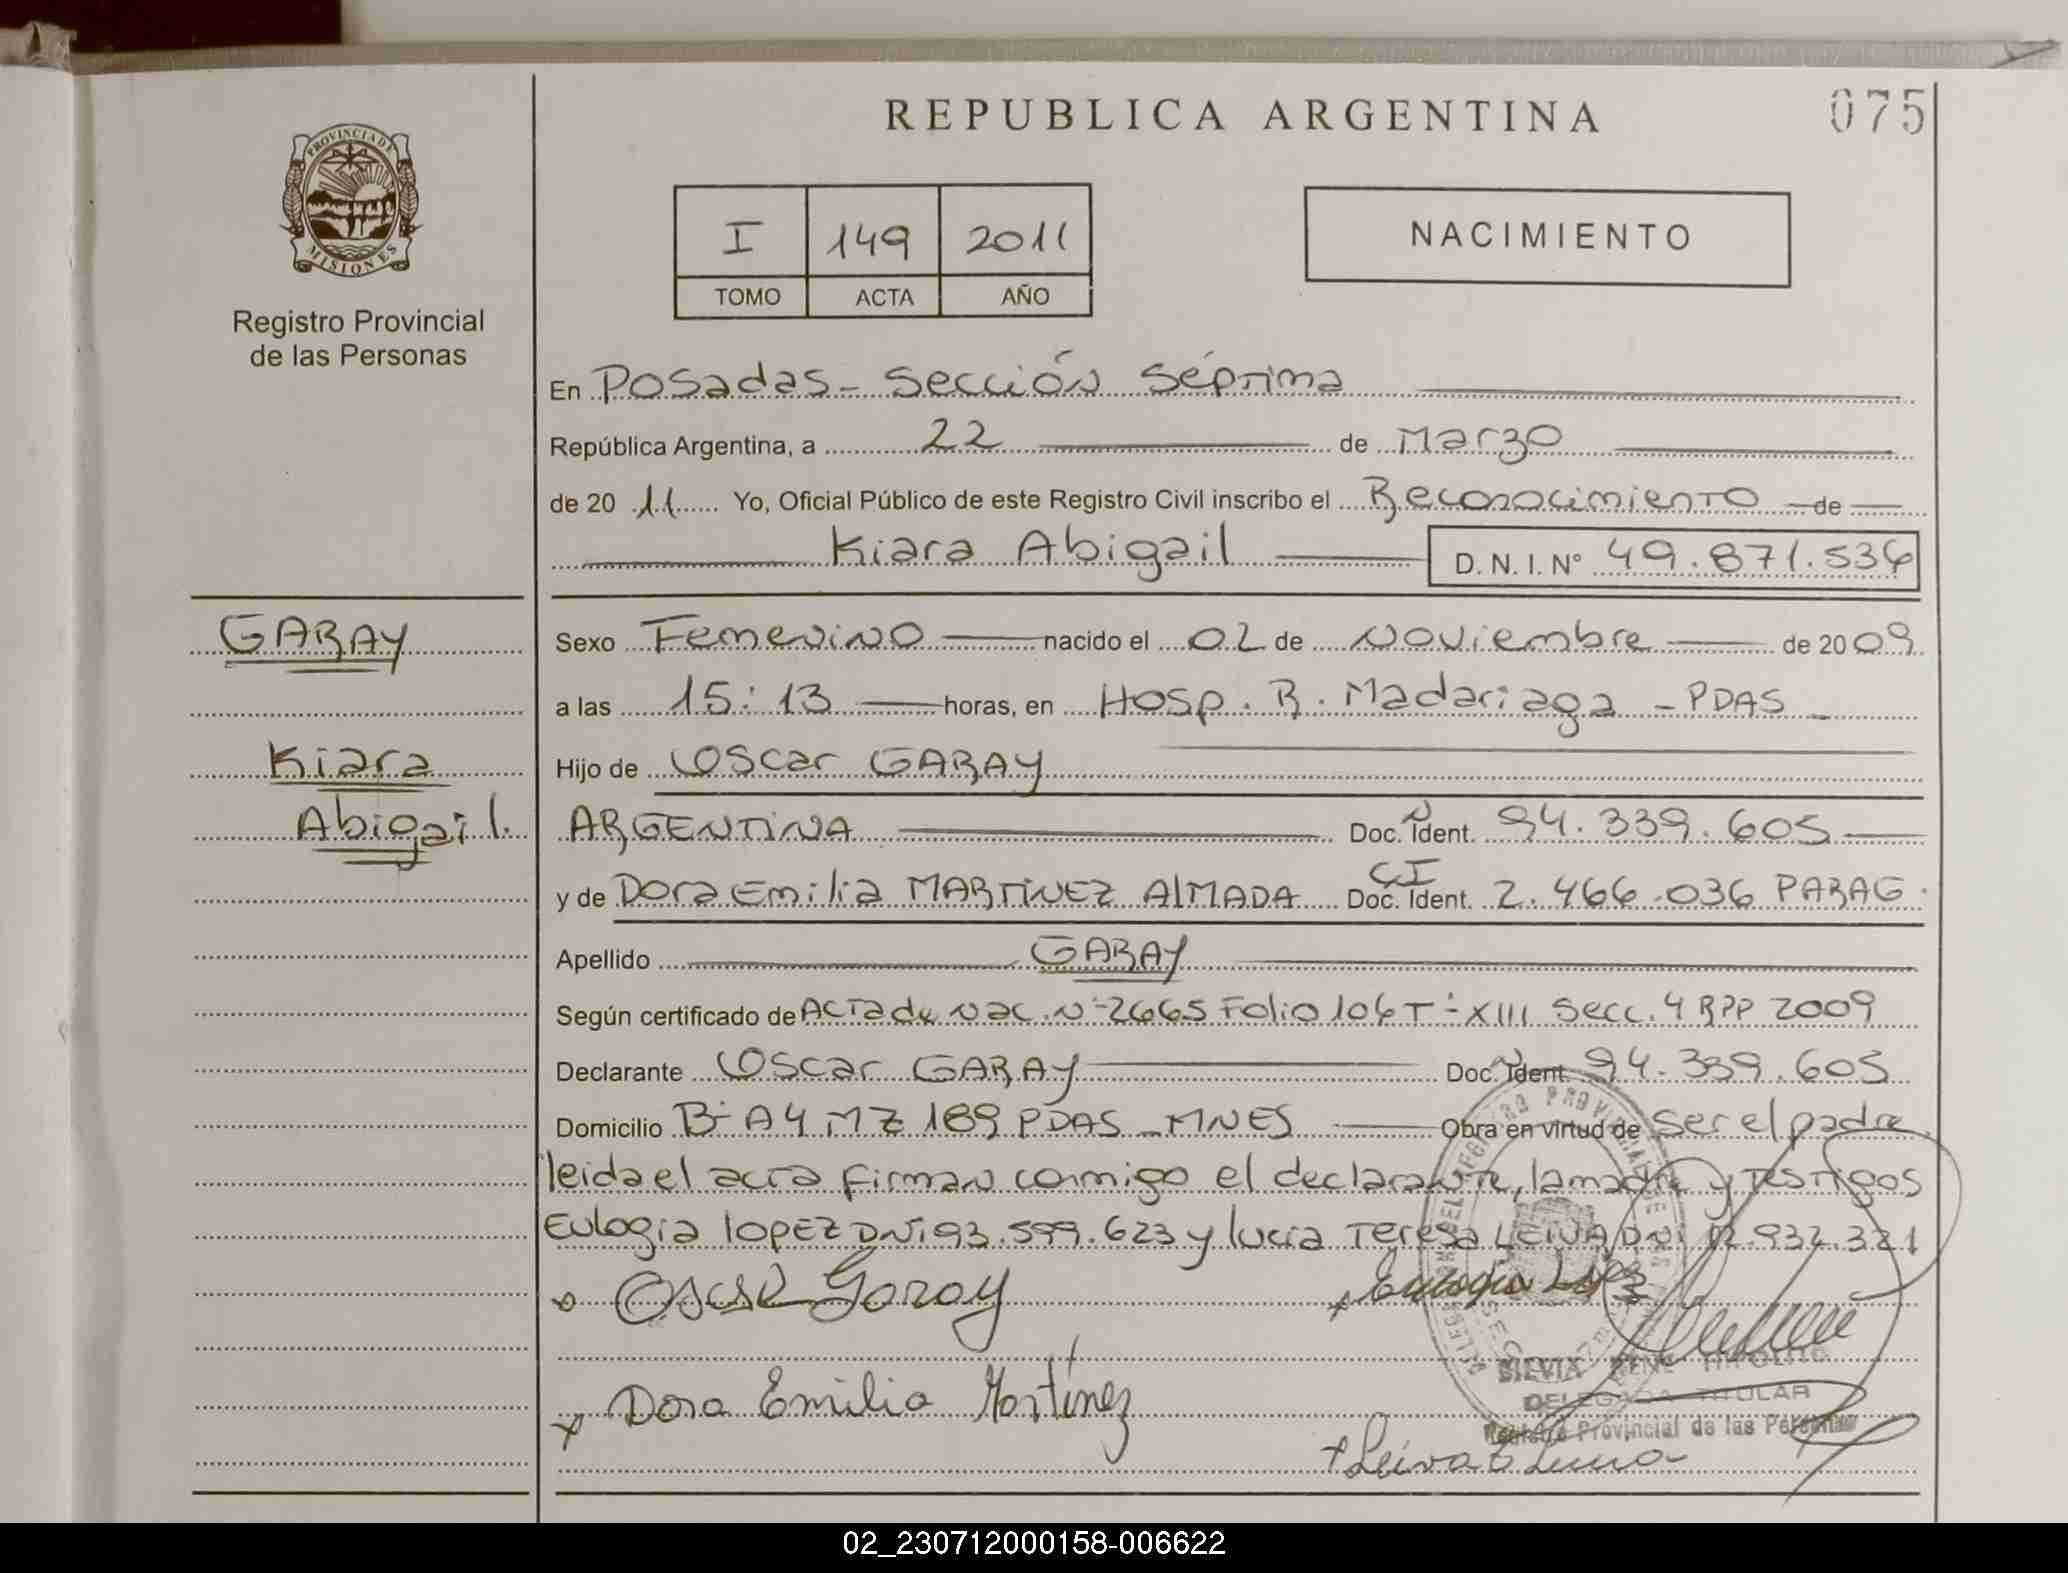 REPUBLICA ARGENTINA
075
PROVINCIA DE
MISIONES
Registro Provincial
de las Personas
I 149 2011
TOMO ACTA AÑO
NACIMIENTO
En Posadas - Sección Séptima
República Argentina, a 22 de Marzo
de 20 11 Yo, Oficial Público de este Registro Civil inscribo el Reconocimiento de
Kiara Abigail D. N. I. Nº 49.871.536
GARAY
Kiara
Abigail.
Sexo Femenino nacido el 02 de Noviembre de 2009
a las 15:13 horas, en Hosp. R. Madariaga - PDAS -
Hijo de Oscar GARAY
ARGENTINA Doc. Ident. 94.339.605
y de Dora Emilia MARTINEZ AlMADA CI Doc. Ident. 2.466.036 PARAG.
Apellido GARAY
Según certificado de Acta de Nac. Nº 2665 Folio 106 Tº XIII Secc. 4 RPP 2009
Declarante Oscar GARAY Doc. Ident. 94.339.605
Domicilio Bº A4 MZ 189 PDAS - MNES Obra en virtud de ser el padre
leida el acta firman conmigo el declarante, la madre y testigos
Eulogia lopez DNi 93.599.623 y lucia Teresa LEIVA DNi 12.932.321
Oscar Garay
Eulogia Lopez
SILVIA RENE HIPOLITO
DELEGADA TITULAR
Registro Provincial de las Personas
Dora Emilia Martínez
Leiva Lucia
02_230712000158-006622